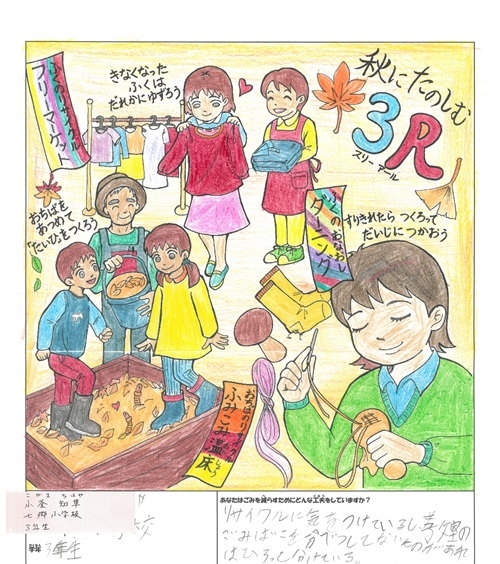 秋にたのしむ
3R
スリーアール
ふくのリサイクル
フリーマーケット
きなくなった
ふくは
だれかにゆずろう
おちばを
あつめて
「たいひ」をつくろう
すりきれたら つくろって
だいじにつかおう
ダーニング
おちばのリサイクル
ふみこみ温床
しょう
七郷小学校
3年生
学年
3年生
あなたはごみを減らすためにどんな工夫をしていますか？
リサイクルに気をつけているし学校の
ごみばこで分べつしてないものがあれ
ばひろって分けている。